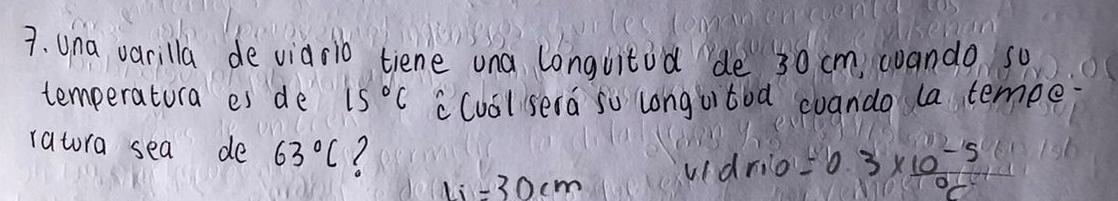 7. Una varilla de vidrio tiene una longuitud de 30 cm, cuando su
temperatura es de 15 °C ¿Cuál será su longuitud cuando la tempe-
ratura sea de 63 °C?
vidrio = 0.3 x 10⁻⁵/°C
Li = 30 cm